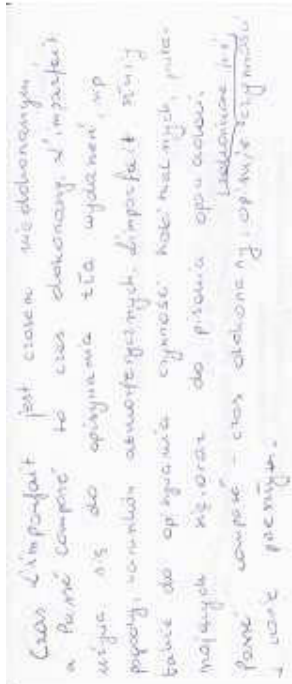 Czas L'imparfait jest czasem niedokonanym
a Passé composé to czas dokonany. L'imparfait
używa się do opisywania tła wydarzeń, np
pogody, warunków atmosferycznych. L'imparfait służy
także do opisywania czynność
się oraz do pisania opowiadań.
Passé composé - czas dokonany, opisuje czynności
przeszłym.